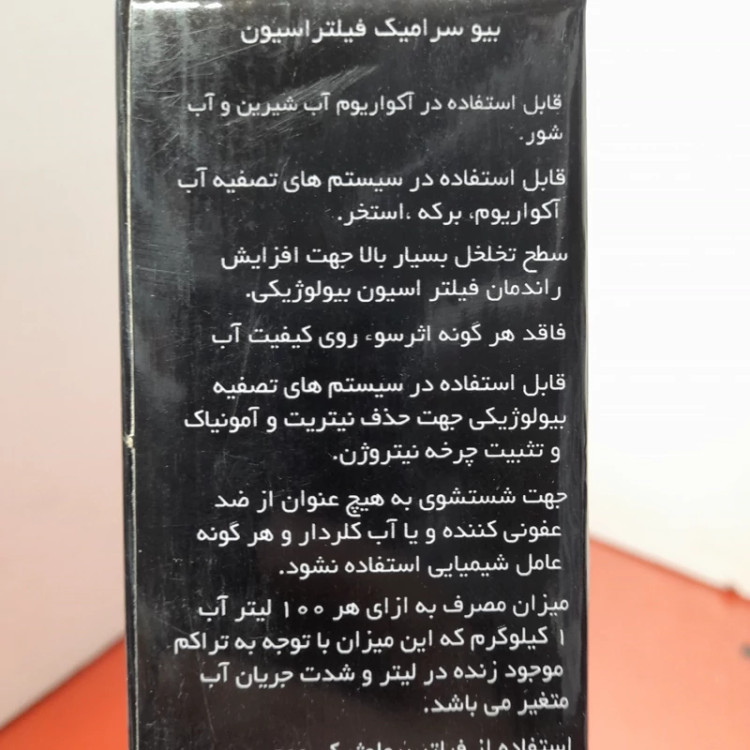 بیو سرامیک فیلتراسیون
قابل استفاده در آکواریوم آب شیرین و آب
شور.
قابل استفاده در سیستم های تصفیه آب
آکواریوم، برکه ،استخر.
سطح تخلخل بسیار بالا جهت افزایش
راندمان فیلتر اسیون بیولوژیکی.
فاقد هر گونه اثرسوء روی کیفیت آب
قابل استفاده در سیستم های تصفیه
بیولوژیکی جهت حذف نیتریت و آمونیاک
و تثبیت چرخه نیتروژن.
جهت شستشوی به هیچ عنوان از ضد
عفونی کننده و یا آب کلردار و هر گونه
عامل شیمیایی استفاده نشود.
میزان مصرف به ازای هر ۱۰۰ لیتر آب
۱ کیلوگرم که این میزان با توجه به تراکم
موجود زنده در لیتر و شدت جریان آب
متغیر می باشد.
استفاده از فیلتر